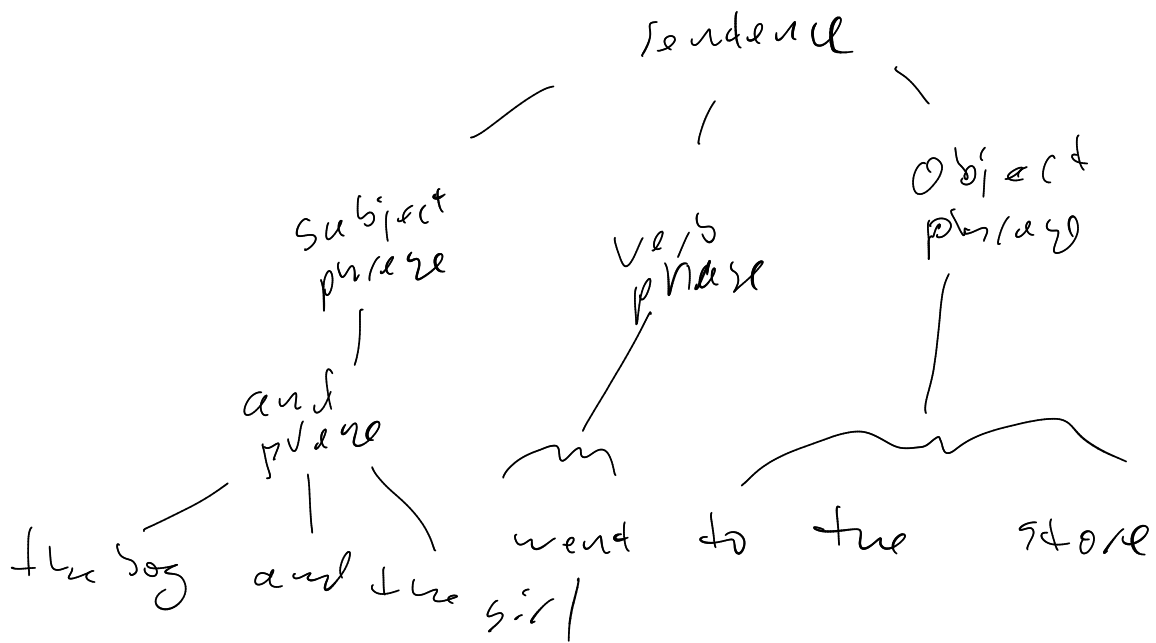 sentence
subject
phrase
verb
phrase
Object
phrase
and
phrase
the boy and the girl went to the store